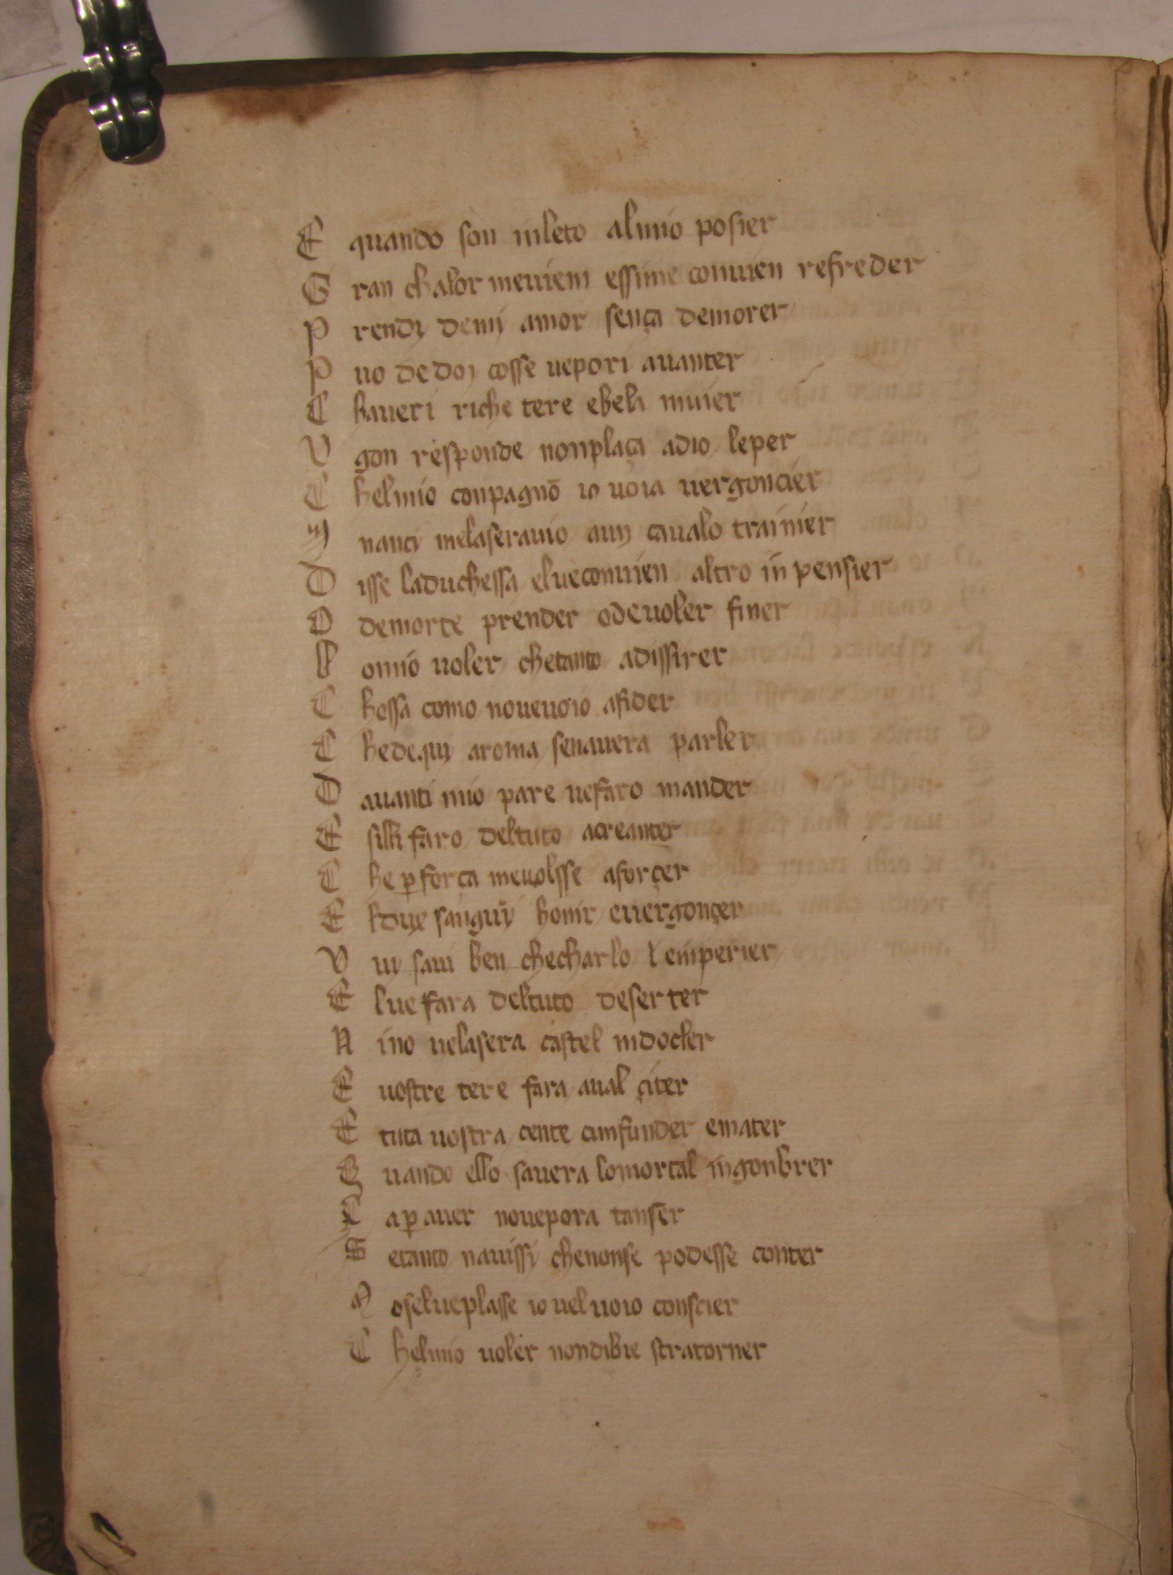 E quando son inleto almio posier
G ran chalor meuieni essime conuien refreder
P rendi demi amor sença demorer
P uo dedoi cosse uepori auanter
C haueri riche tere ebela muier
V gon responde nonplaça adio leper
C helmio conpagnō io uoia uergoncier
M nanci melaserauio aun caualo trainier
D isse laduchessa elueconuien altro in pensier
O demorte prender odeuoler finer
L omio uoler chetanto adissirer
C hossa como noueuoio afider
C hedequi aroma senauera parler
D auanti mio pare uefaro mander
E silli faro deltuto acreanter
C he ꝑforça meuolsse aforçer
E ldux sanguin honir euergonçer
V ui saui ben checharlo lemperier
E luefara deltuto deserter
N ino uelasera castel indocler
E uostre tere fara aual çiter
E tuta uostra cente confunder emater
Q uando ello sauera lomortal ingonbrer
C aꝑ auer nouepora tanser
S etanto nauissi chenonse podesse conter
M oseluеplasse io uel uoio conscier
C helmio uoler nondibie stratorner